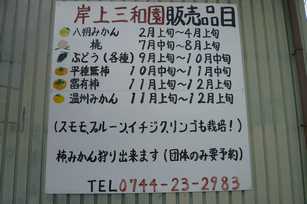 岸上三和園販売品目
八朔みかん 2月上旬~4月上旬
桃 7月中旬~8月上旬
ぶどう(各種) 9月上旬~10月中旬
平種無柿 10月上旬~11月中旬
富有柿 11月上旬~12月上旬
温州みかん 11月上旬~12月上旬
(スモモ,プルーン,イチジク,リンゴも栽培!)
柿みかん狩り出来ます(団体のみ要予約)
TEL 0744-23-2983